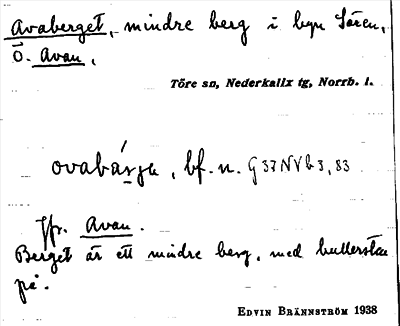 Avaberget, mindre berg i byn Sören,
Ö. Avan.
Töre sn, Nederkalix tg, Norrb. l.
ovabárja, bf. n. G37NVb3,83
Jfr. Avan.
Berget är ett mindre berg, med bullersten
på.
EDVIN BRÄNNSTRÖM 1938